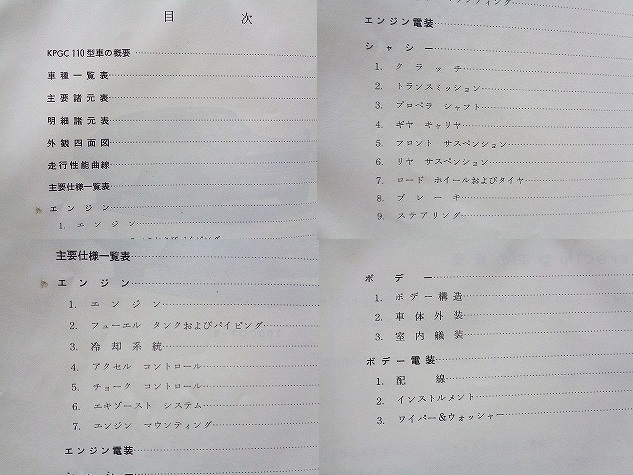 目 次
KPGC 110 型車の概要
車種一覧表
主要諸元表
明細諸元表
外観四面図
走行性能曲線
主要仕様一覧表
エンジン
1. エンジン
主要仕様一覧表
エンジン
1. エンジン
2. フューエル タンクおよびパイピング
3. 冷却系統
4. アクセル コントロール
5. チョーク コントロール
6. エキゾースト システム
7. エンジン マウンティング
エンジン電装
エンジン電装
シャシー
1. クラッチ
2. トランスミッション
3. プロペラ シャフト
4. ギヤ キャリヤ
5. フロント サスペンション
6. リヤ サスペンション
7. ロード ホイールおよびタイヤ
8. ブレーキ
9. ステアリング
ボデー
1. ボデー構造
2. 車体外装
3. 室内艤装
ボデー電装
1. 配線
2. インストルメント
3. ワイパー&ウォッシャー